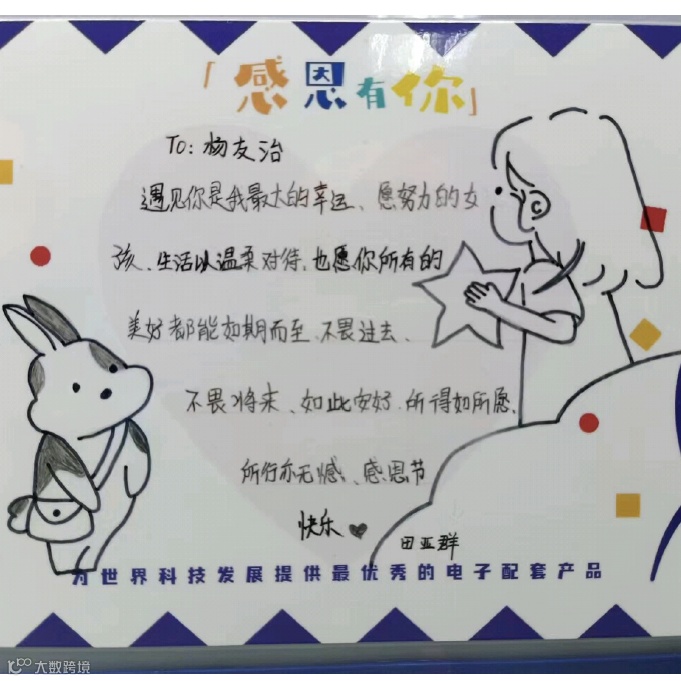 「感恩有你」
To：杨友治
遇见你是我最大的幸运、愿努力的女
孩、生活以温柔对待，也愿你所有的
美好都能如期而至、不畏过去、
不畏将来、如此安好，所得如所愿，
所行亦无憾、感恩节
快乐
田亚群
为世界科技发展提供最优秀的电子配套产品
大数跨境